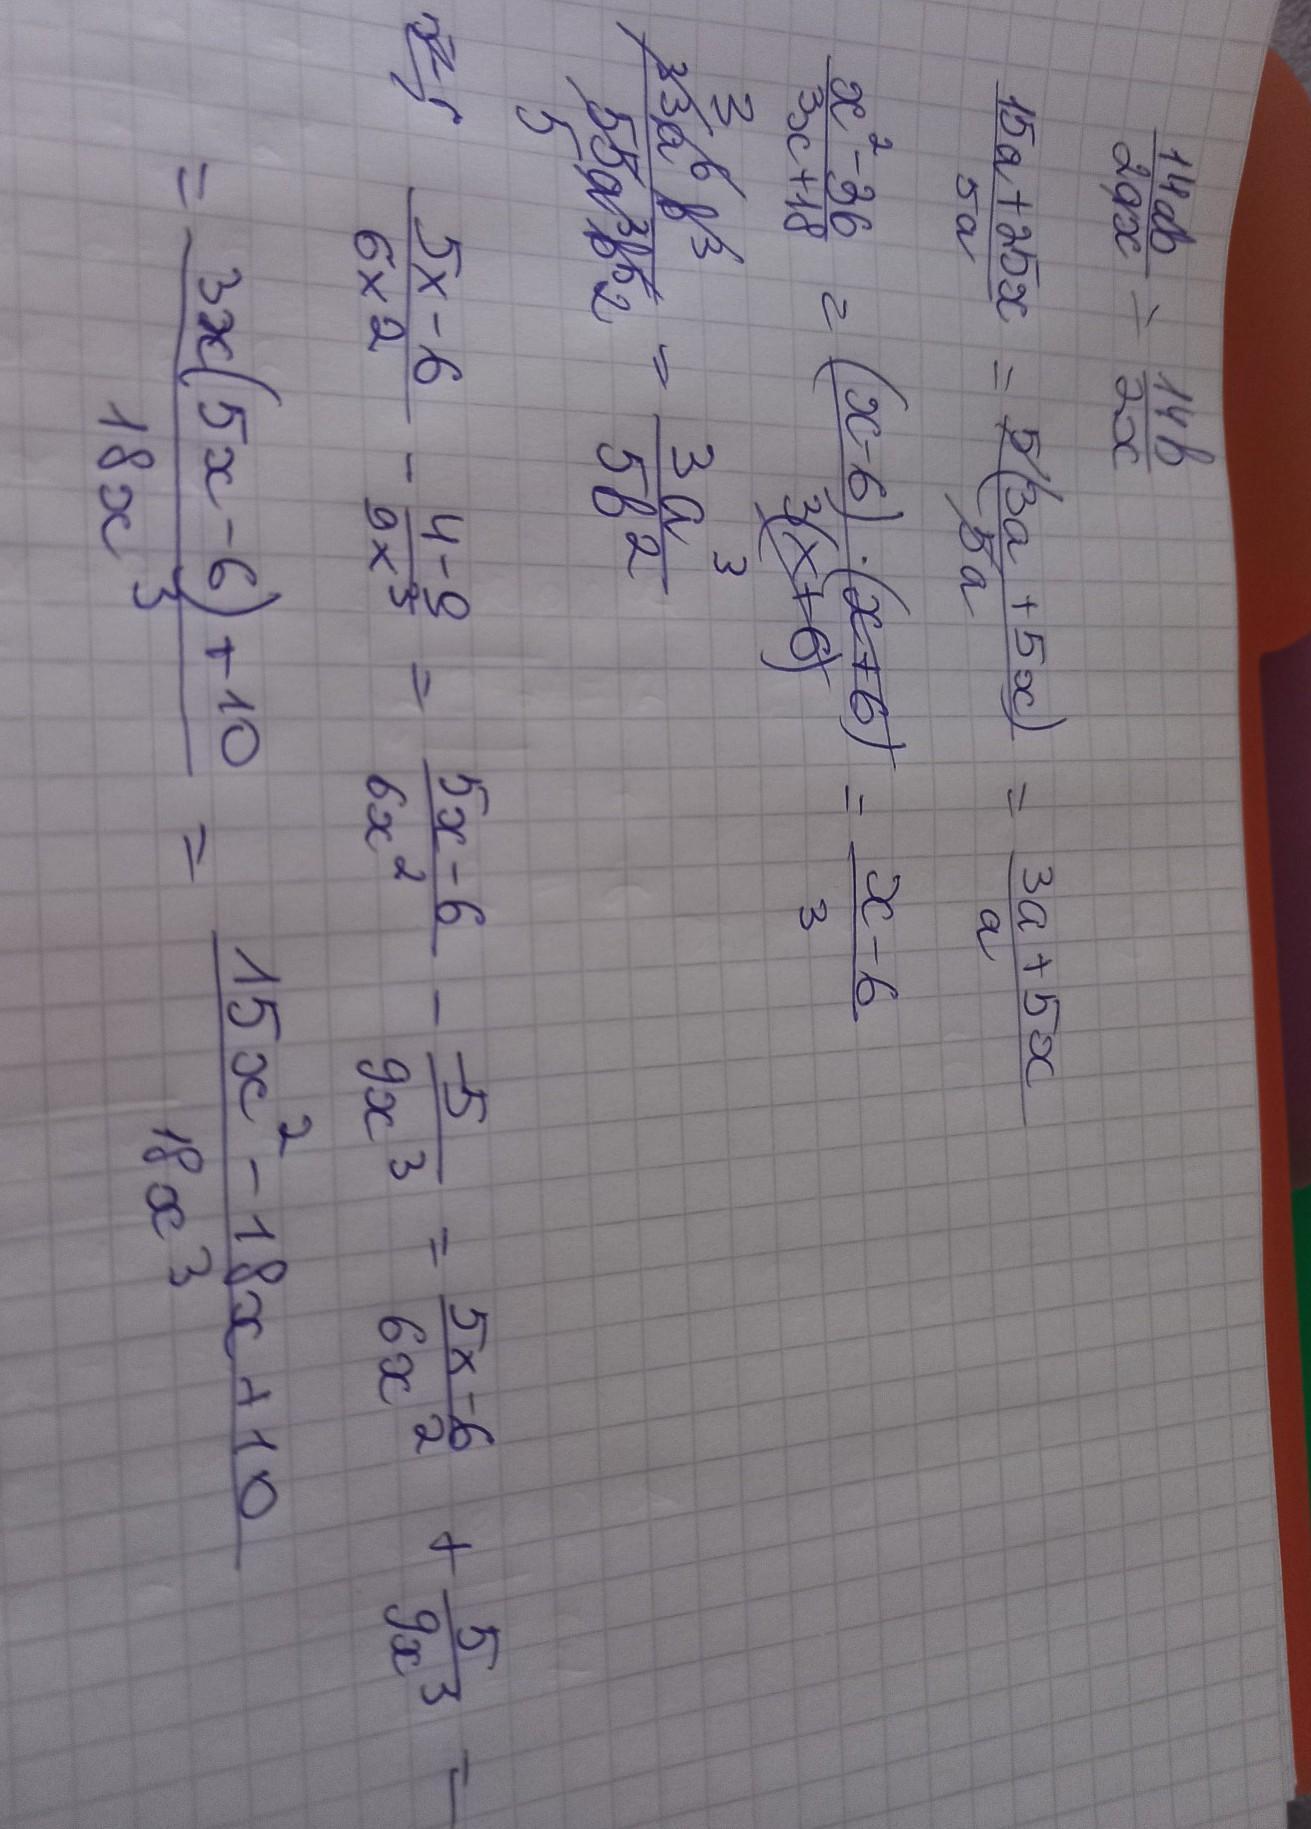 14ab/2ax = 14b/2x
15a+25x/5a = 5(3a+5x)/5a = 3a+5x/a
x²-36/3x+18 = (x-6)·(x+6)/3(x+6) = x-6/3
3 5 = 3a³/5b²
5x-6/6x² - 4-9/9x³ = 5x-6/6x² - -5/9x³ = 5x-6/6x² + 5/9x³ =
= 3x(5x-6)+10/18x³ = 15x²-18x+10/18x³